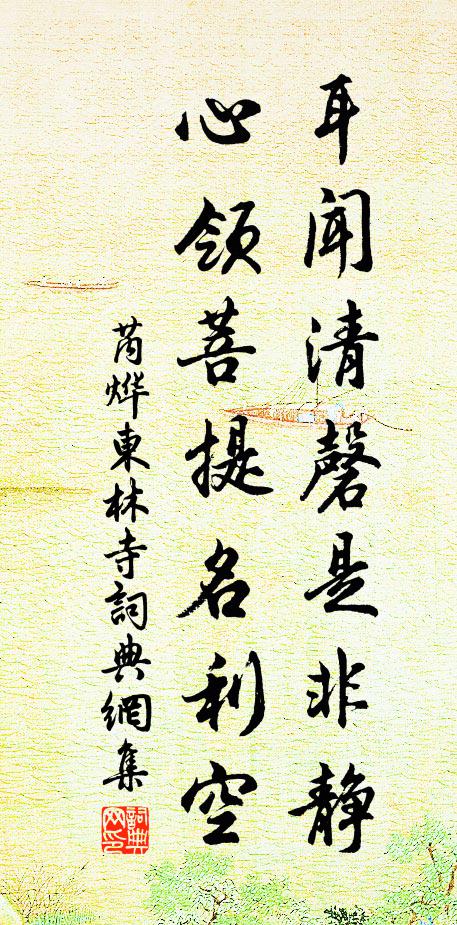 耳聞清磬是非静
心領菩提名利空
芮烨東林寺詞典網集
詞典
网印